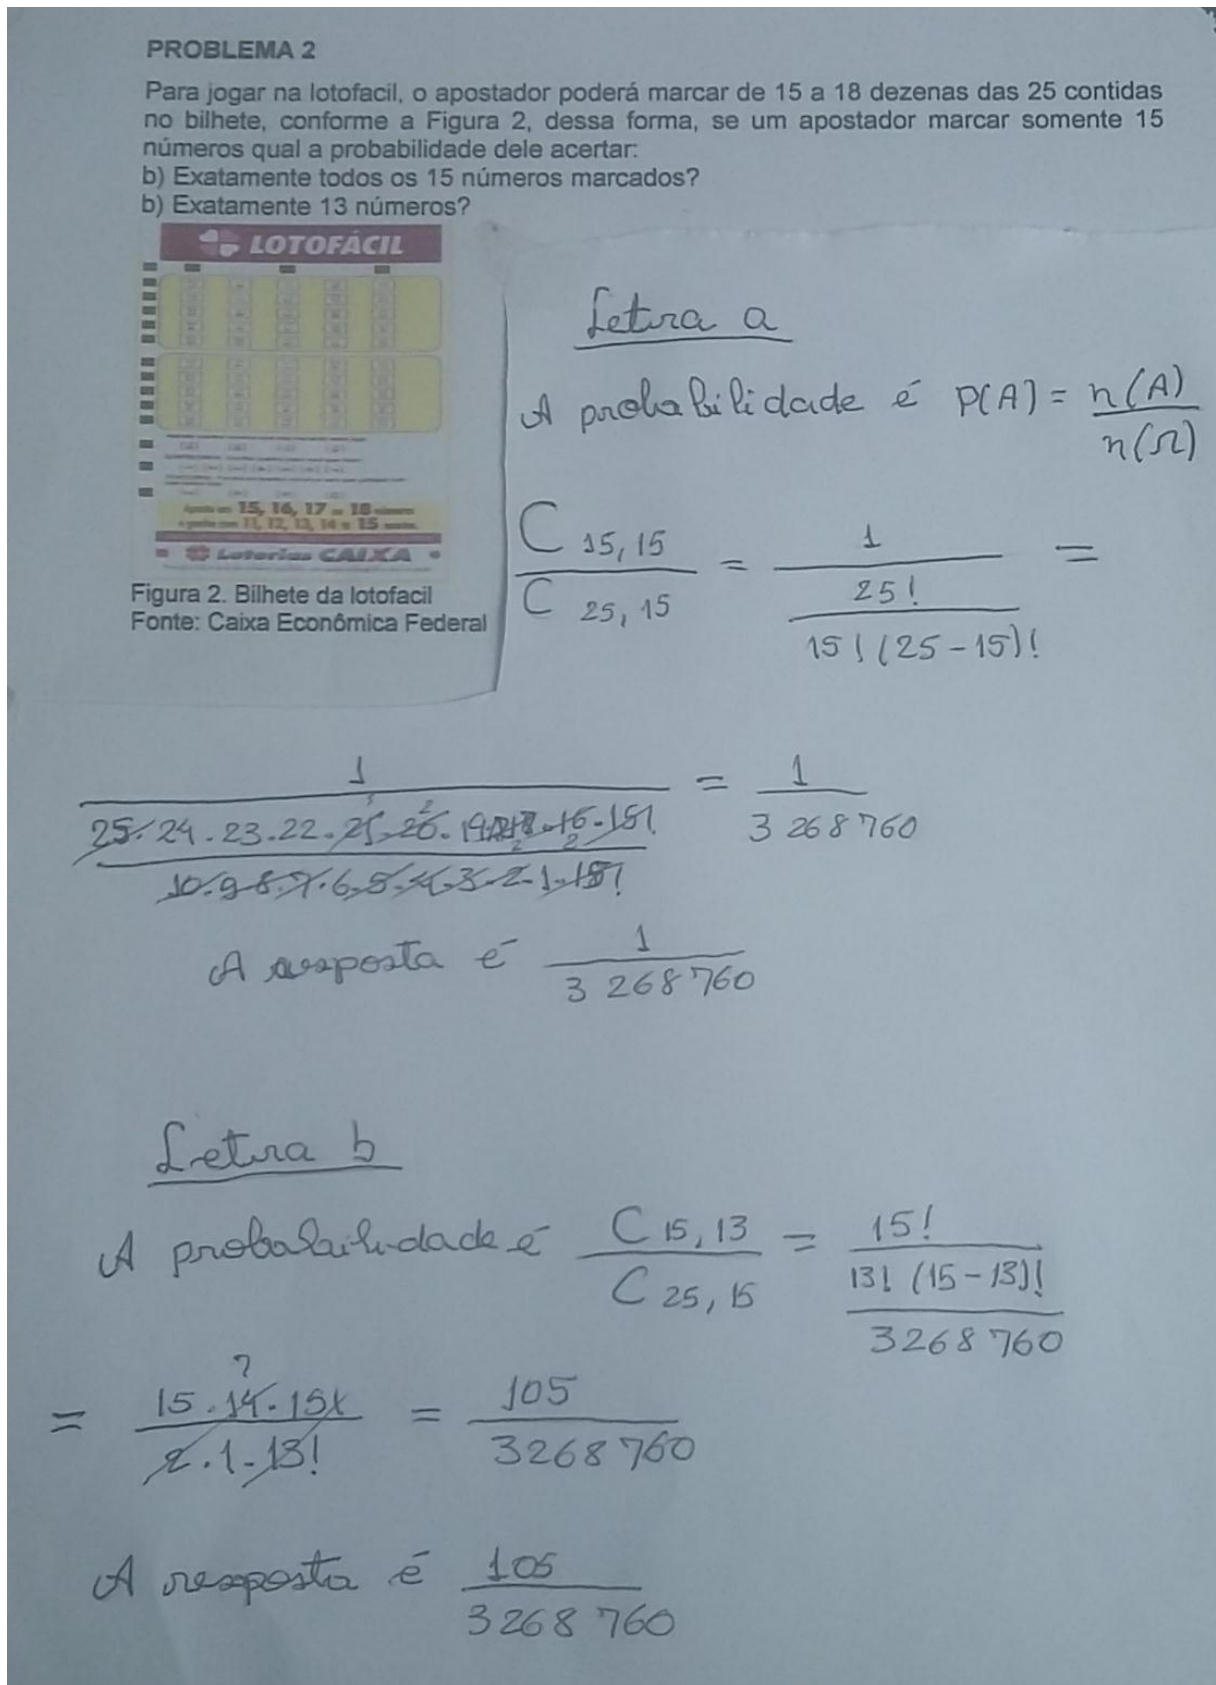 PROBLEMA 2
Para jogar na lotofacil, o apostador poderá marcar de 15 a 18 dezenas das 25 contidas
no bilhete, conforme a Figura 2, dessa forma, se um apostador marcar somente 15
números qual a probabilidade dele acertar:
b) Exatamente todos os 15 números marcados?
b) Exatamente 13 números?
LOTOFÁCIL
15, 16, 17 18
11, 12, 13, 14 15
Loterias CAIXA
Figura 2. Bilhete da lotofacil
Fonte: Caixa Econômica Federal
Letra a
A probabilidade é P(A) = n(A) / n(Ω)
C 15, 15 / C 25, 15 = 1 / (25! / 15! (25 - 15)!) =
1 / (25 . 24 . 23 . 22 . 21 . 20 . 19 . 18 . 17 . 16 . 15! / 10 . 9 . 8 . 7 . 6 . 5 . 4 . 3 . 2 . 1 . 15!) = 1 / 3 268 760
A resposta é 1 / 3 268 760
Letra b
A probabailidade é C 15, 13 / C 25, 15 = (15! / 13! (15 - 13)!) / 3268 760
= 15 . 14 . 13! / 2 . 1 . 13! = 105 / 3268 760
A resposta é 105 / 3268 760